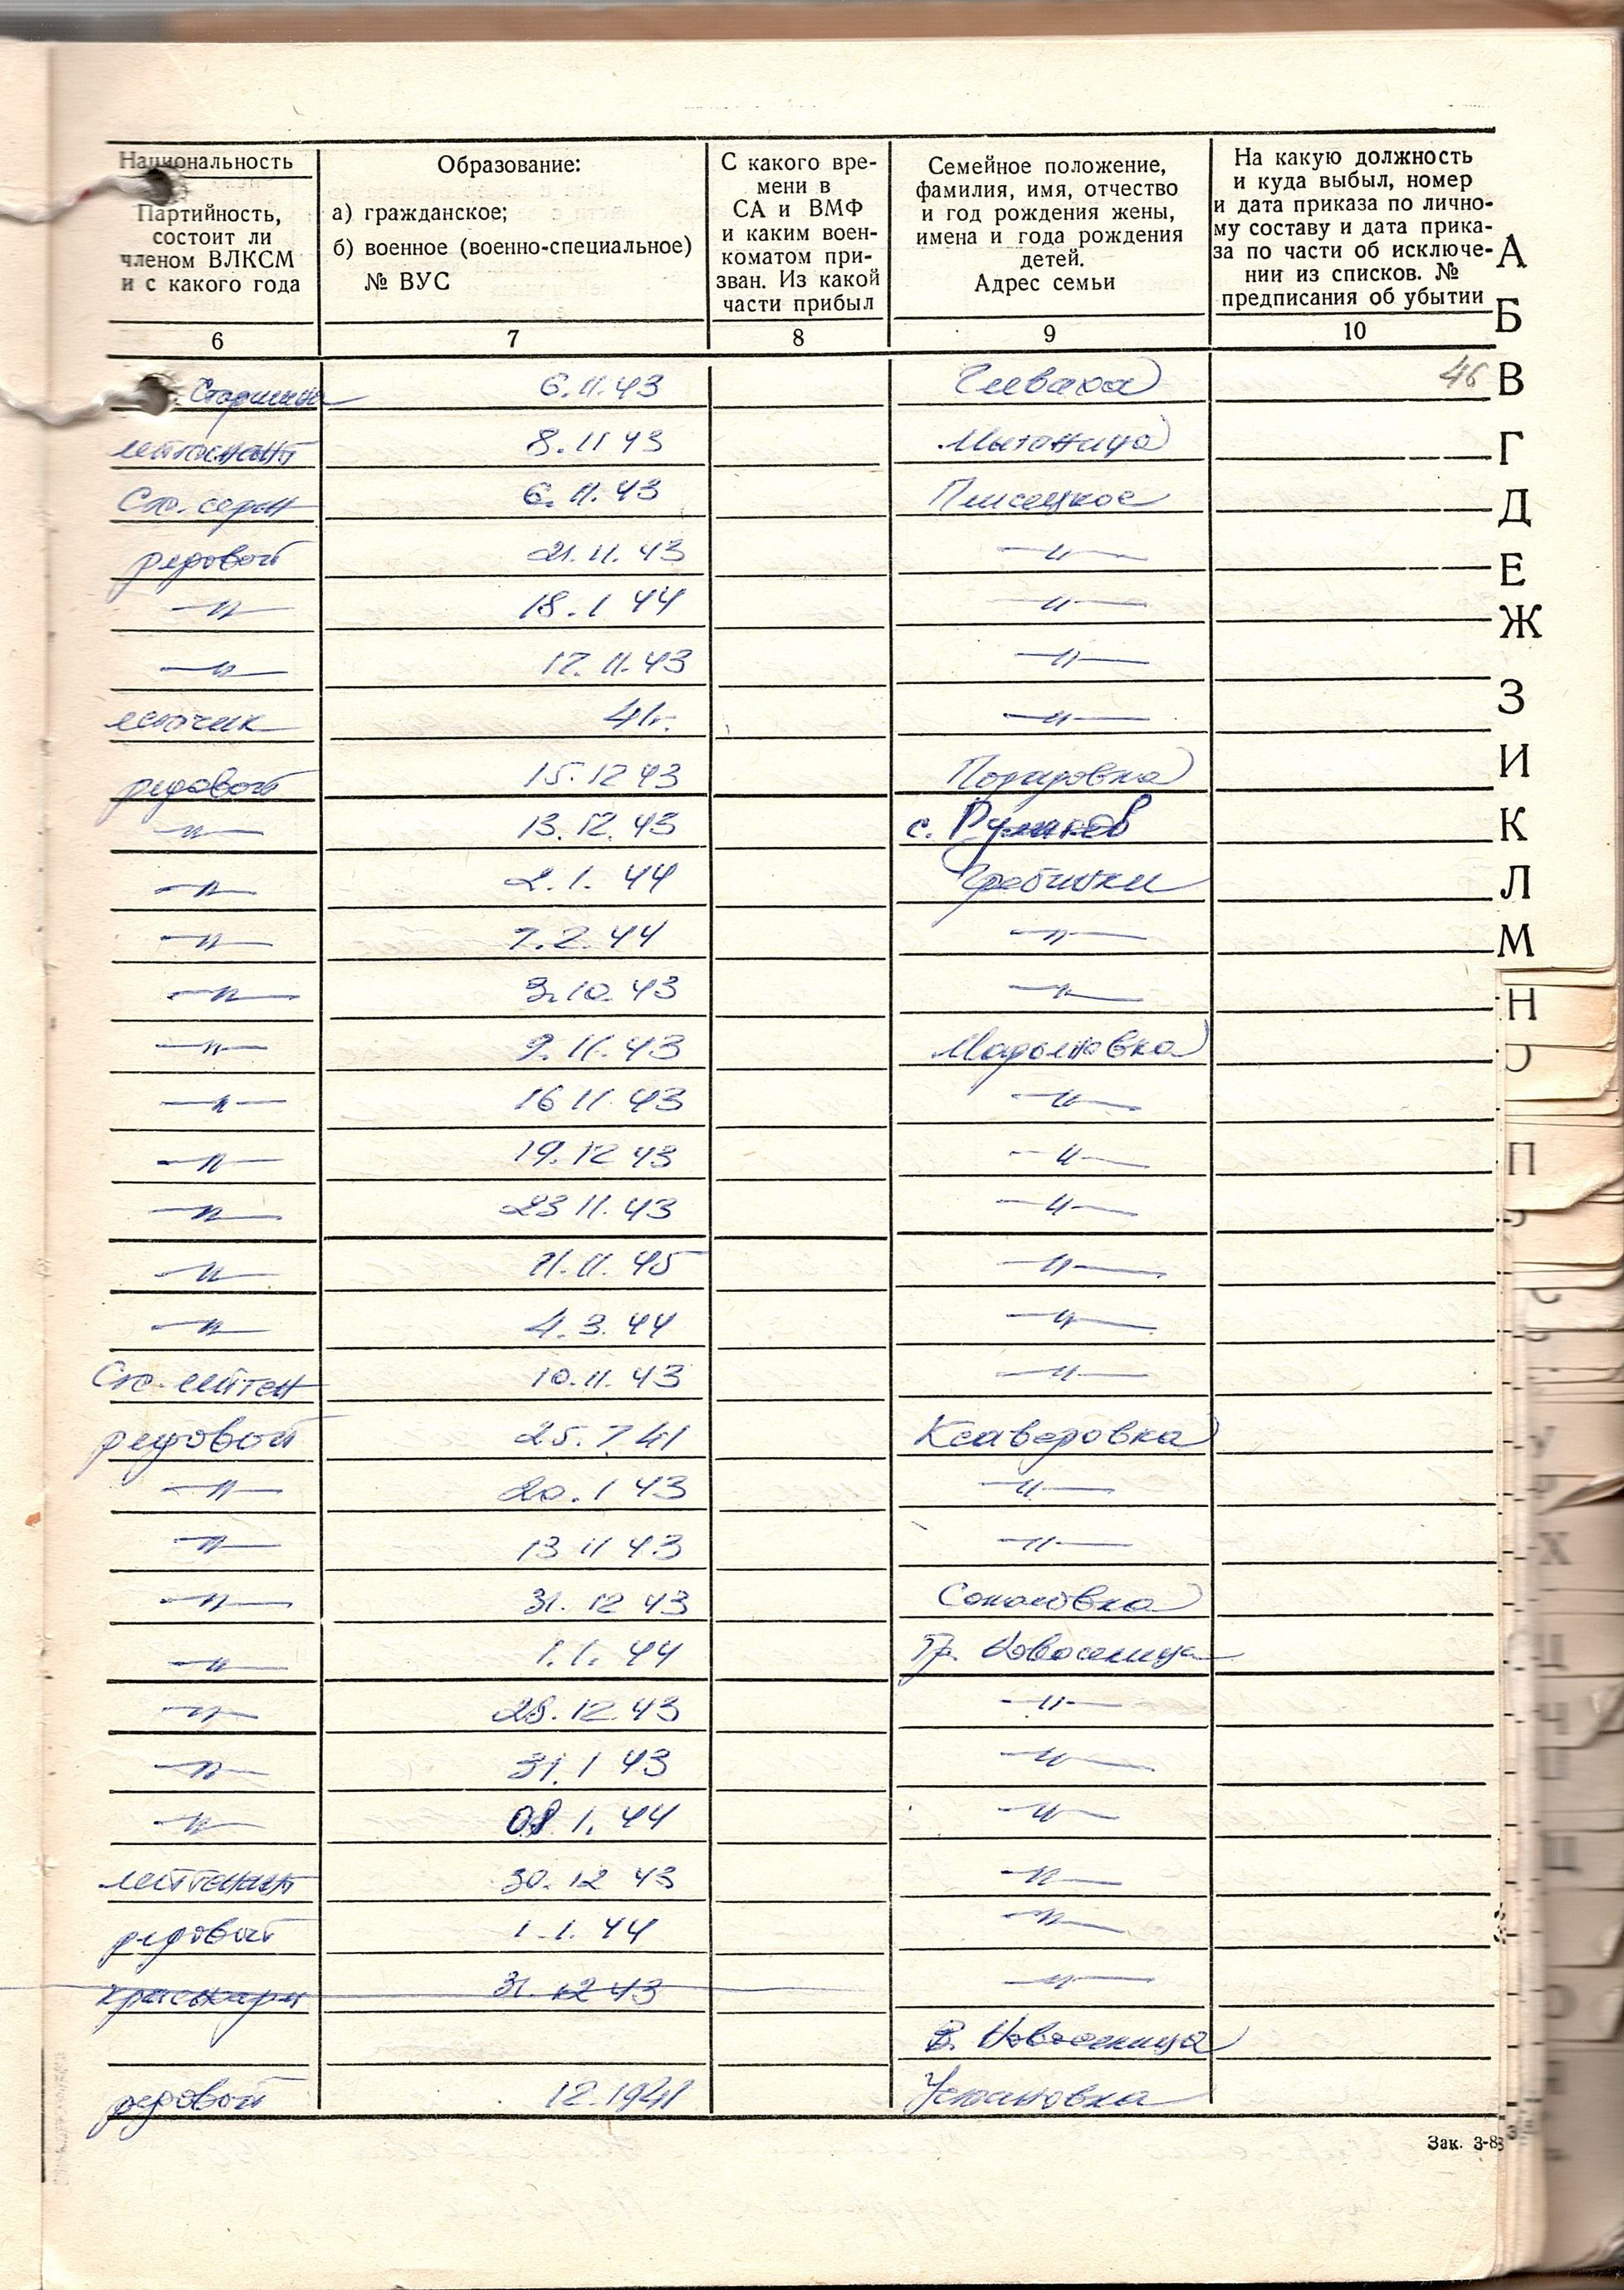 Национальность
Партийность,
состоит ли
членом ВЛКСМ
и с какого года
Образование:
а) гражданское;
б) военное (военно-специальное)
№ ВУС
С какого вре-
мени в
СА и ВМФ
и каким воен-
коматом при-
зван. Из какой
части прибыл
Семейное положение,
фамилия, имя, отчество
и год рождения жены,
имена и года рождения
детей.
Адрес семьи
На какую должность
и куда выбыл, номер
и дата приказа по лично-
му составу и дата прика-
за по части об исключе-
нии из списков. №
предписания об убытии
6 7 8 9 10
Старшина 6.11.43 Глеваха 46
лейтенант 8.11 43 Мытница
Ст. серж 6.11.43 Плисецкое
рядовой 21.11.43 —〃—
—〃— 18.1 44 —〃—
—〃— 17.11.43 —〃—
летчик 41г. —〃—
рядовой 15.12 43 Порадовка
—〃— 13.12.43 с. Руликов
—〃— 2.1.44 Гребинки
—〃— 7.2.44 —〃—
—〃— 3.10.43 —〃—
—〃— 9.11.43 Марьяновка
—〃— 16 11.43 —〃—
—〃— 19.12 43 —〃—
—〃— 23 11.43 —〃—
—〃— 11.11.45 —〃—
—〃— 4.3.44 —〃—
Ст. лейтен 10.11.43 —〃—
рядовой 25.7.41 Ксаверовка
—〃— 20.1 43 —〃—
—〃— 13 11 43 —〃—
—〃— 31.12 43 Соколовка
—〃— 1.1.44 Тр. Новоселица
—〃— 28.12.43 —〃—
—〃— 31.1 43 —〃—
—〃— 08 1.44 —〃—
лейтенант 30.12 43 —〃—
рядовой 1.1.44 —〃—
красноарм 31.12 43 —〃—
В. Новоселица
рядовой 12.1941 Устимовка
Зак. 3-8
А
Б
В
Г
Д
Е
Ж
З
И
К
Л
М
Н
О
П
У
Х
Ц
Ч